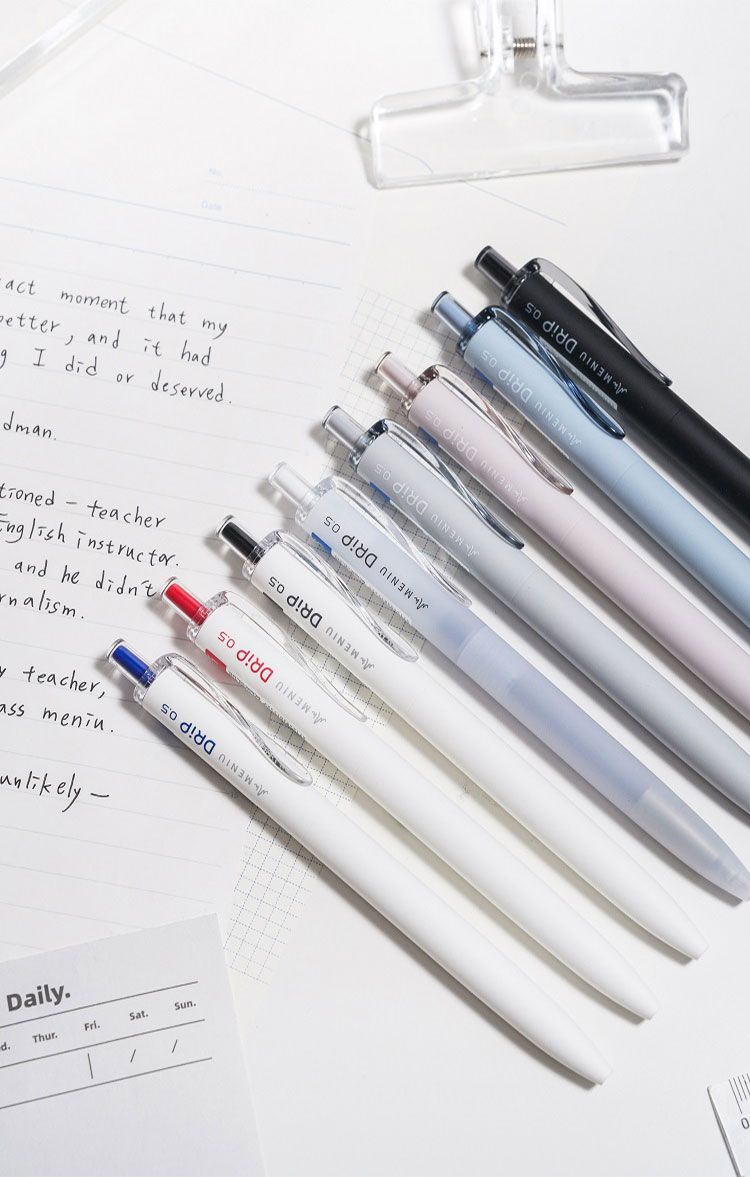 No.
Date
act moment that my
better, and it had
g I did or deserved.
dman.
tioned – teacher
English instructor.
and he didn't
rnalism.
y teacher,
ass meniu.
unlikely –
MENIU DRiP 0.5
MENIU DRiP 0.5
MENIU DRiP 0.5
MENIU DRiP 0.5
MENIU DRiP 0.5
MENIU DRiP 0.5
MENIU DRiP 0.5
MENIU DRiP 0.5
Daily.
d. Thur. Fri. Sat. Sun.
| / /
0